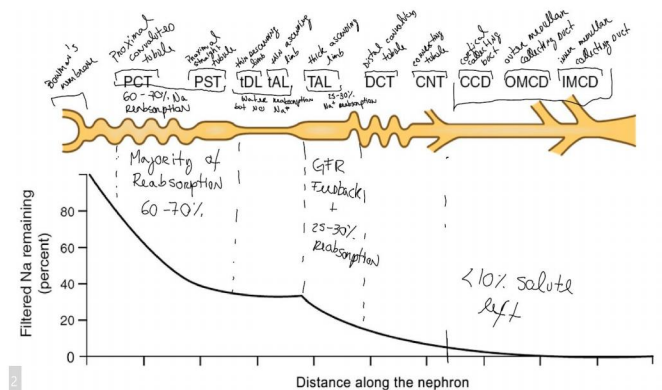 Bowman's
membrane
Proximal
convoluted
tubule
Proximal
straight
tubule
thin descending
limb
thin ascending
limb
thick ascending
limb
distal convoluted
tubule
connecting
tubule
cortical
collecting
duct
outer medullary
collecting duct
inner medullary
collecting duct
PCT PST tDL tAL TAL DCT CNT CCD OMCD IMCD
60-70% Na
Reabsorption
Water reabsorption
but not Na+
25-30%
Na+ reabsorption
Majority of
Reabsorption
60-70%
GFR
Feedback
+
25-30%
Reabsorption
<10% solute
left
Filtered Na remaining
(percent)
80
60
40
20
0
Distance along the nephron
2